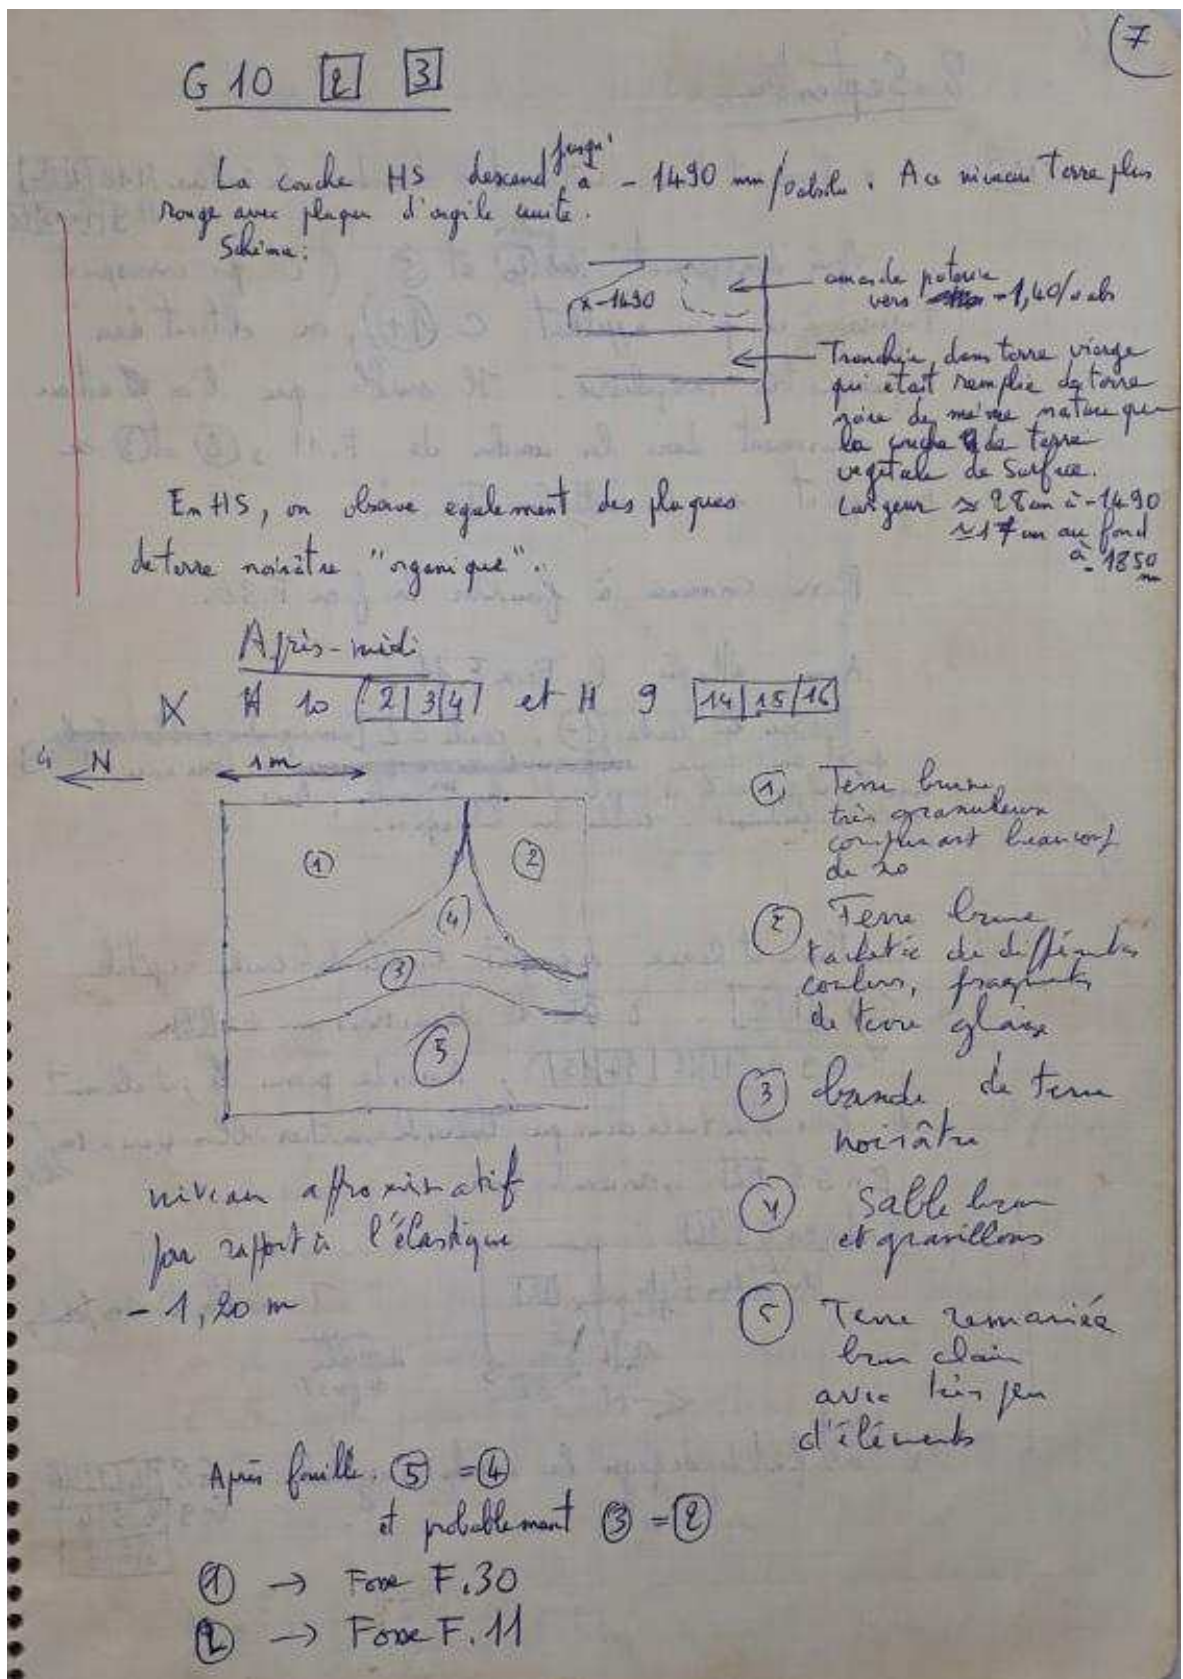 7
G 10 2 3
La couche HS descend jusqu'à - 1490 mm/0 absolu. A ce niveau Terre plus
rouge avec plaques d'argile cuite.
Schéma:
x-1490
amas de poterie
vers -1,40/0 abs
Tranchée, dans terre vierge
qui était remplie de terre
noire de même nature que
la couche de terre
végétale de Surface.
Largeur ≈ 28 cm à -1490
≃ 17 cm au fond
à -1850
mm
En HS, on observe egalement des plaques
de terre noirâtre "organique".
Après-midi
H 10 2 3 4 et H 9 14 15 16
N
1m
1
2
4
3
5
① Terre brune
très granuleuse
comprenant beaucoup
de
② Terre brune
tachetée de différentes
couleurs, fragments
de terre glaise
③ bande de terre
noirâtre
④ Sable brun
et gravillons
⑤ Terre remaniée
brun clair
avec très peu
d'éléments
niveau approximatif
par rapport à l'élastique
- 1,20 m
Après fouille. ⑤ = ④
et probablement ③ = ②
① → Fosse F.30
② → Fosse F.11